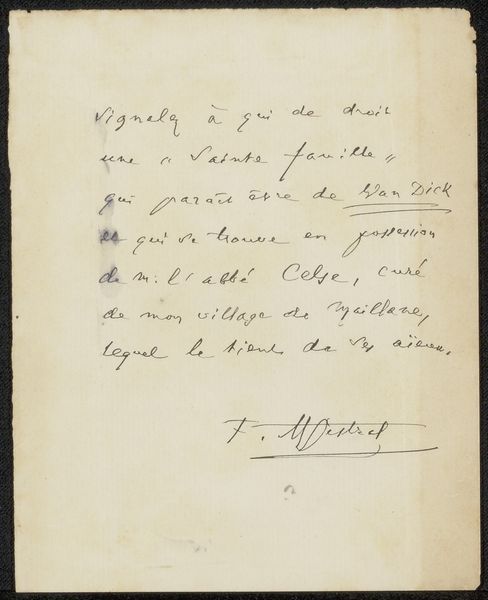 Signalez à qui de droit
une « Sainte famille »
qui paraît être de Wan Dick
et qui se trouve en possession
de m. l'abbé Celse, curé
de mon village de Maillane,
lequel le tient de ses aïeux.
F. Mistral